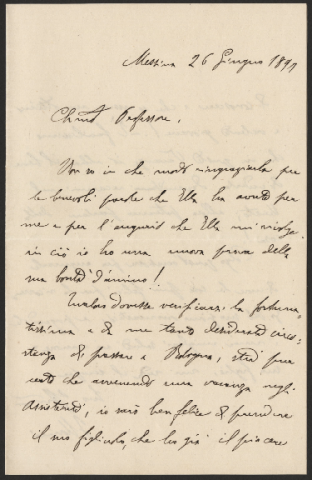 Messina 26 Giugno 1891
Chmo Professore,
Non so in che modo ringraziarla per
le benevoli parole che Ella ha avuto per
me e per l'augurio che Ella mi rivolge.
in ciò io ho una nuova prova della
sua bontà d'animo!
Qualora dovesse verificarsi la fortuna-
tissima e da me tanto desiderata circo-
stanza di passare a Bologna, stia pur
certo che avvenendo una vacanza negli
Assistenti, io sarò ben felice di prendere
il suo figliuolo, che ho già il piacere